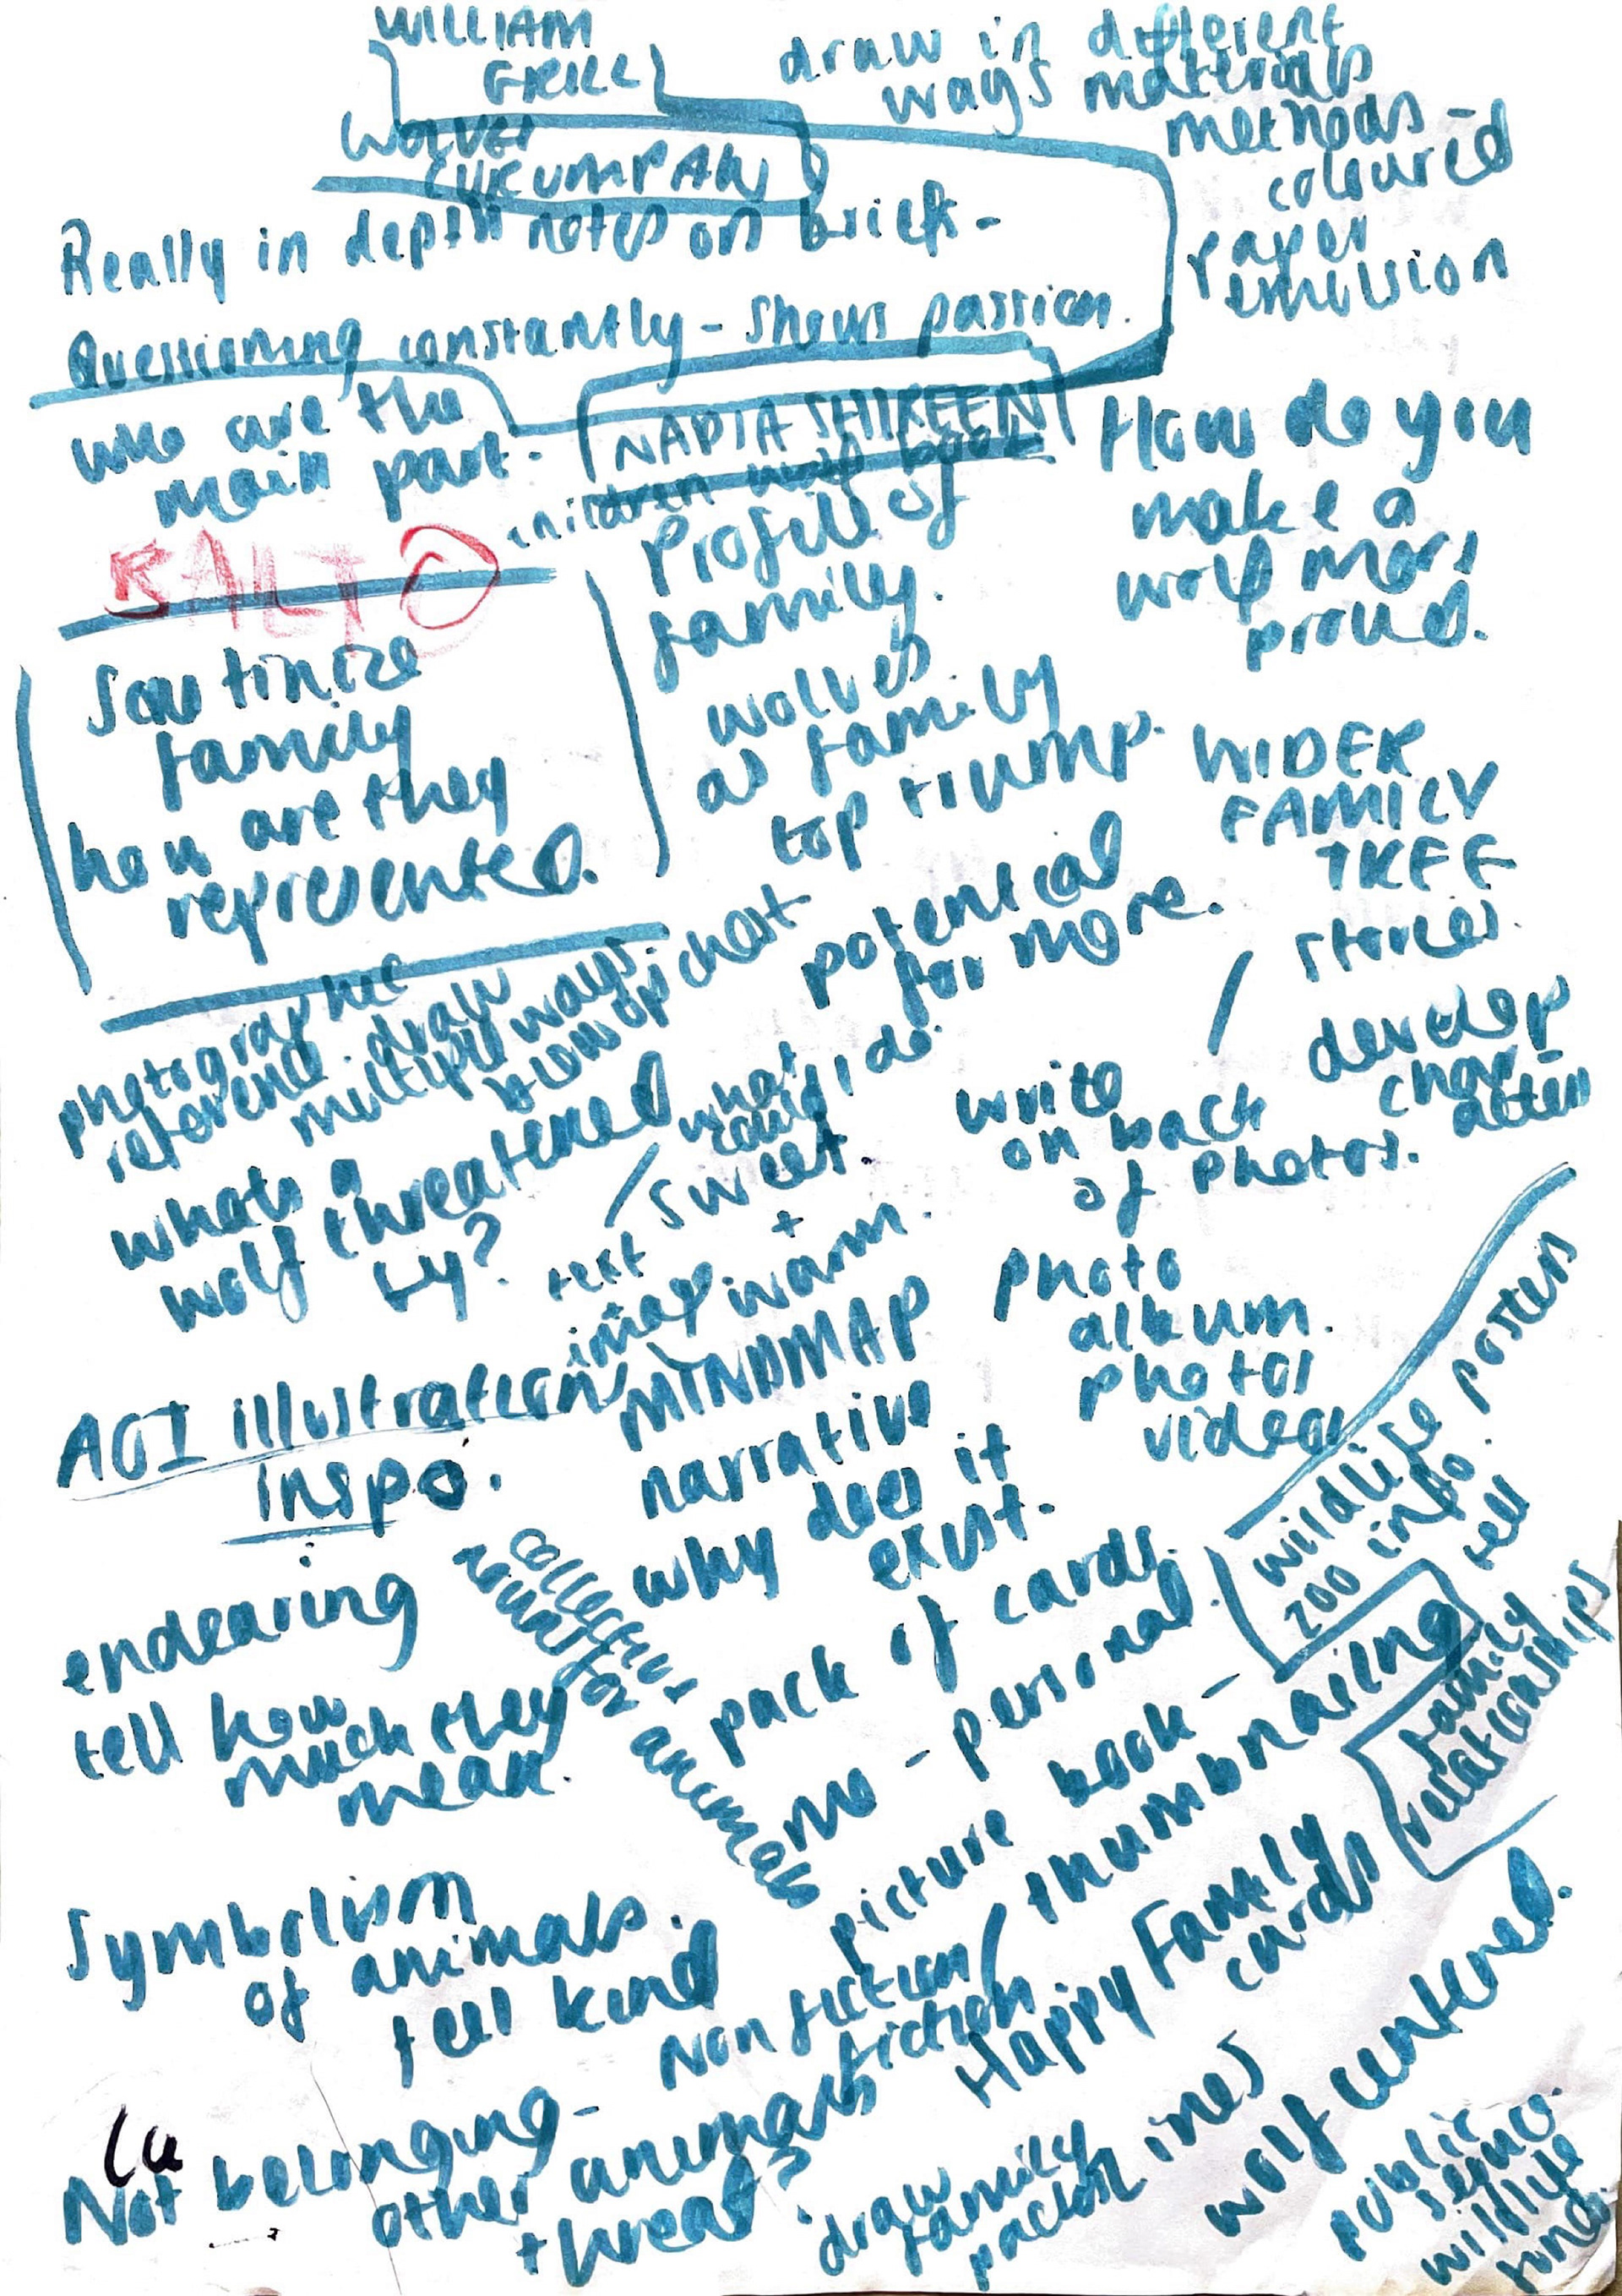 WILLIAM
GRILL
WOLVES
CURUMPAW
draw in different
ways materials
methods -
coloured
paper
emulsion
Really in depth notes on brief -
Questioning constantly - shows passion.
who are the
main part.
NADIA SHIREEN
children wolf book
BALTO
How do you
make a
wolf mors
proud.
Profile of
family.
wolves
as family
top trump.
Scrutinize
family
how are they
represented.
WIDER
FAMILY
TREE
stories.
develop
char-
acters
potential
for more.
photographic
reference. draw
multiple ways.
blow up chest
what
could I do.
whats a
wolf threatened
by?
sweet
+
warm.
text
+
image
write
on back
of photos.
photo
album.
photos
videos
AOI illustration
inspo.
MINDMAP
narrative
why does it
exist.
wildlife posters
zoo info.
tell
family
relationships
endearing
tell how
much they
mean.
collective
nouns for animals
pack of cards.
mo - personal.
picture book -
thumbnailing
Symbolism
of animals.
tell kind
Non fiction /
fiction
Happy Family
cards
Not belonging -
other animals
threat?
draw
family
pack
lines
wolf centered.
public
wildlife
fund.